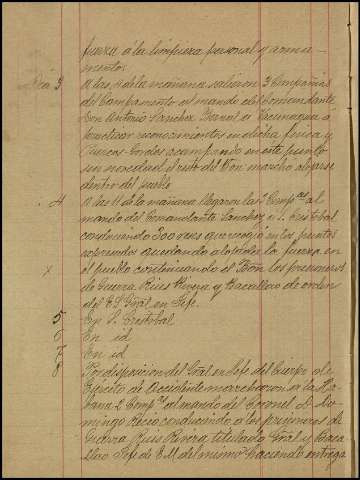 fuerza á la limpieza personal y arma-
mento.
Dia 3 A las 6 de la mañana salieron 3 Compañias
del Campamento al mando del Comandante
Don Antonio Sanchez Bernal a
practicar reconocimientos en dicha finca y
Cuevas Gordas acampando en este punto
sin novedad el resto del Bon marcho alojarse
dentro del pueblo
4 A las 11 de la mañana llegaron las Compas al
mando del Comandante Sanchez a S. Cristobal
conduciendo 300 reses que recogió en los puntos
espresados quedando alojada la fuerza en
x el pueblo continuando el Bon los prisioneros
de Guerra Rius Rivera y Bacallao de orden
del E. S. Gral en Jefe.
5 En S. Cristobal
6 En id
7 En id
8 Por disposicion del Gral en Jefe del Cuerpo de
Ejército de Occidente marcharon a la Ha-
bana 2 Compas al mando del Coronel D. Do-
mingo Recio conduciendo a los prisioneros de
Guerra Rius Rivera titulado Gral y Baca-
llao Jefe de E.M. del mismo haciendo entrega